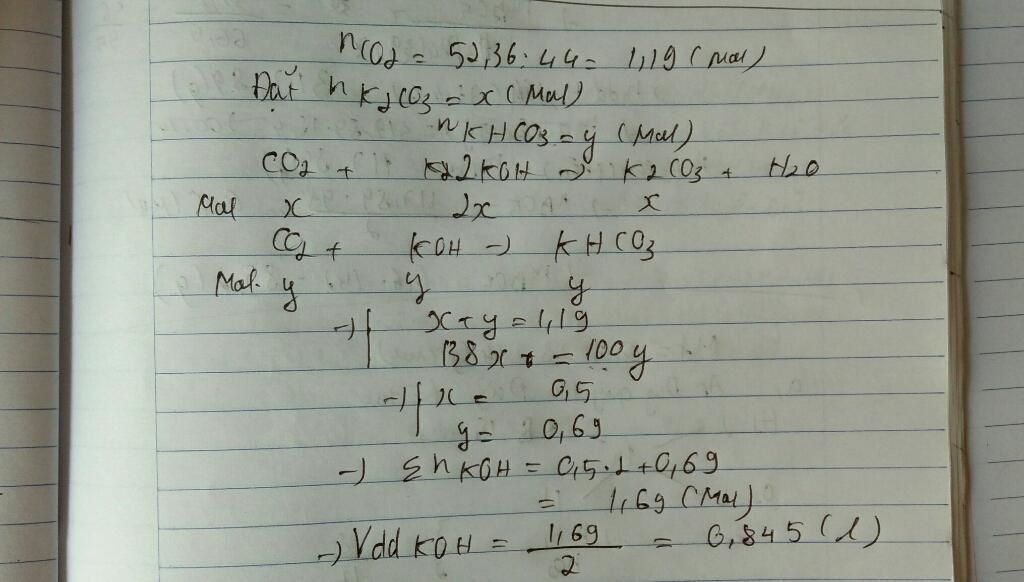 nCO2 = 52,36 : 44 = 1,19 (mol)
Đặt n K2CO3 = x (mol)
n KHCO3 = y (mol)
CO2 + 2KOH -> K2CO3 + H2O
Mol x 2x x
CO2 + KOH -> KHCO3
Mol. y y y
-> | x + y = 1,19
138x = 100y
-> | x = 0,5
y = 0,69
-> Σn KOH = 0,5.2 + 0,69
= 1,69 (mol)
-> Vdd KOH = 1,69 / 2 = 0,845 (l)